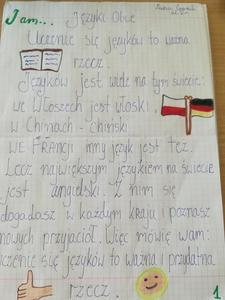 I am... Języki Obce
Uczenie się języków to ważna
rzecz.
Języków jest wiele na tym świecie:
we Włoszech jest włoski
w Chinach - chiński
WE FRANCji inny język jest też.
Lecz największym językiem na świecie
jest angielski. Z nim się
dogadasz w każdym kraju i poznasz
nowych przyjaciół. Więc mówię wam:
uczenie się języków to ważna i przydatna
rzecz.
1